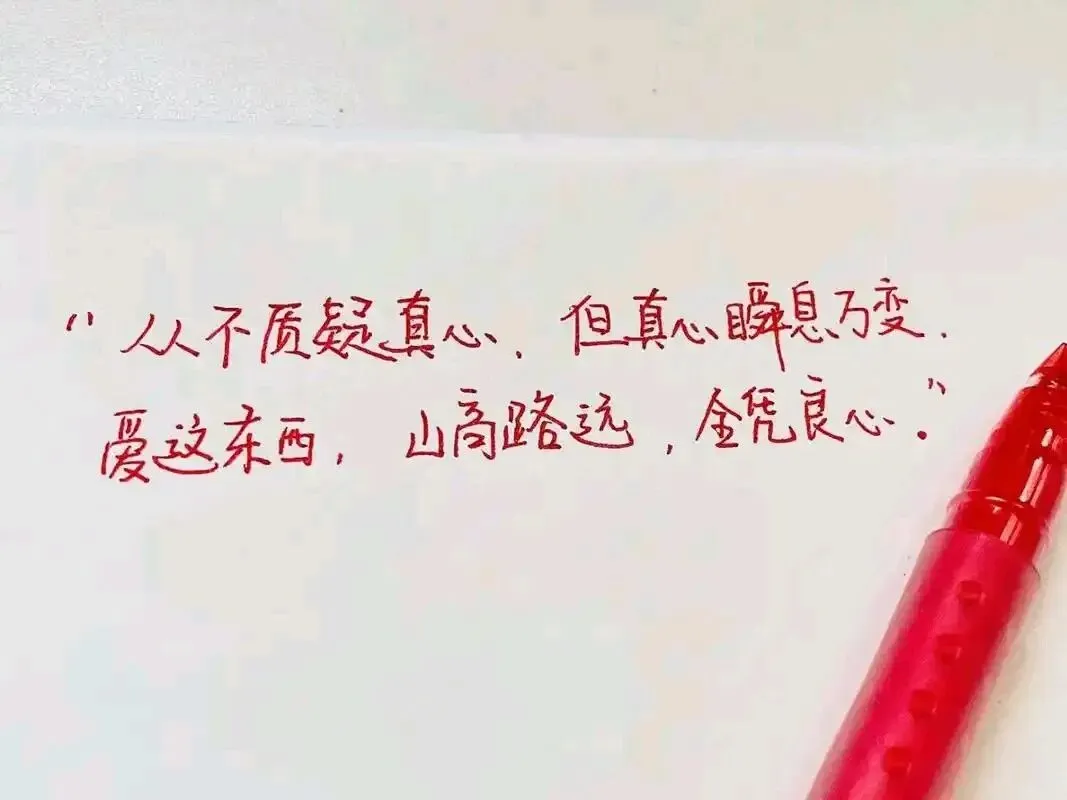 “从不质疑真心，但真心瞬息万变.
爱这东西，山高路远，全凭良心.”